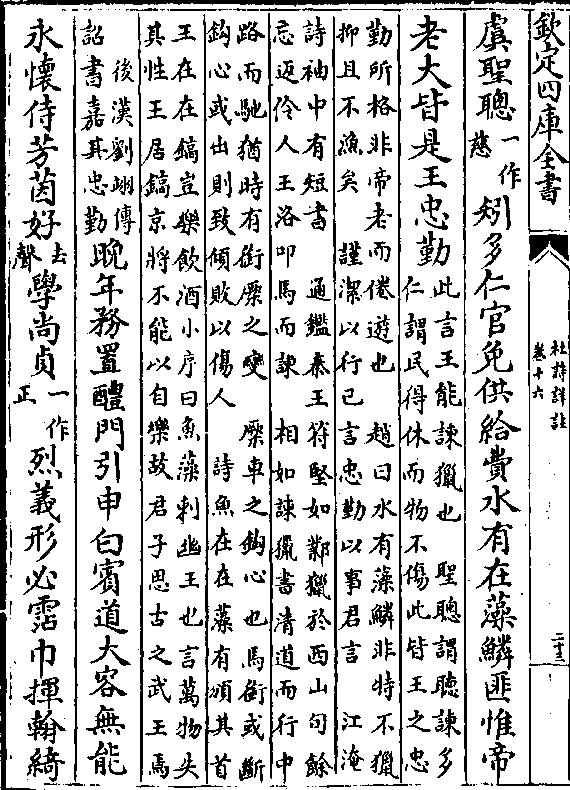 欽定四庫全書
杜詩詳註
卷十六
二十三
虞聖聰一作慈矧多仁官免供給費水有在藻鱗匪惟帝
老大皆是王忠勤
此言王能諫獵也 聖聰謂聽諫多
仁謂民得休而物不傷此皆王之忠
勤所格非帝老而倦遊也 趙曰水有藻鱗非特不獵
抑且不漁矣 謹潔以行已言忠勤以事君言 江淹
詩袖中有短書 通鑑秦王符堅如鄴獵於西山句餘
忘返伶人王洛叩馬而諫 相如諫獵書清道而行中
路而馳猶時有銜橛之變 橛車之鈎心也馬銜或斷
鈎心或出則致傾敗以傷人 詩魚在在藻有頒其首
王在在鎬豈樂飲酒小序曰魚藻刺幽王也言萬物失
其性王居鎬京將不能以自樂故君子思古之武王焉
後漢劉翊傳
詔書嘉其忠勤
晚年務置醴門引申白賓道大容無能
永懷侍芳茵好去聲學尚貞一作正烈義形必霑巾揮翰綺